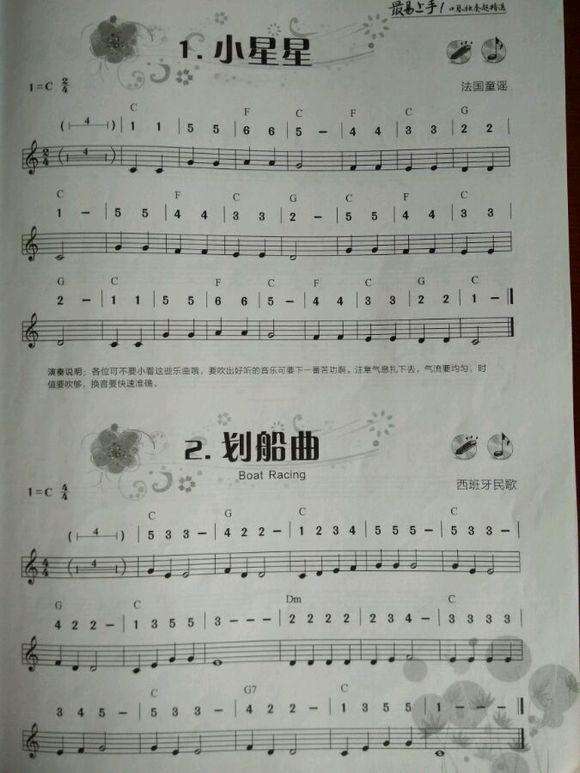 最易上手！口琴独奏超精选
1. 小星星
1=C 2/4
法国童谣
C F C F C G
( 4 ) | 1 1 | 5 5 | 6 6 | 5 - | 4 4 | 3 3 | 2 2 |
C F C G F C
1 - | 5 5 | 4 4 | 3 3 | 2 - | 5 5 | 4 4 | 3 3 |
G C F C F C G C
2 - | 1 1 | 5 5 | 6 6 | 5 - | 4 4 | 3 3 | 2 2 | 1 - ‖
演奏说明：各位可不要小看这些乐曲哦，要吹出好听的音乐可要下一番苦功啊。注意气息扎下去，气流要均匀，时
值要吹够，换音要快速准确。
2. 划船曲
Boat Racing
1=C 4/4
西班牙民歌
C G C C
( 4 ) | 5 3 3 - | 4 2 2 - | 1 2 3 4 | 5 5 5 - | 5 3 3 - |
G C Dm C
4 2 2 - | 1 3 5 5 | 3 - - - | 2 2 2 2 | 2 3 4 - | 3 3 3 3 |
C G7 C
3 4 5 - | 5 3 3 - | 4 2 2 - | 1 3 5 5 | 1 - - - ‖